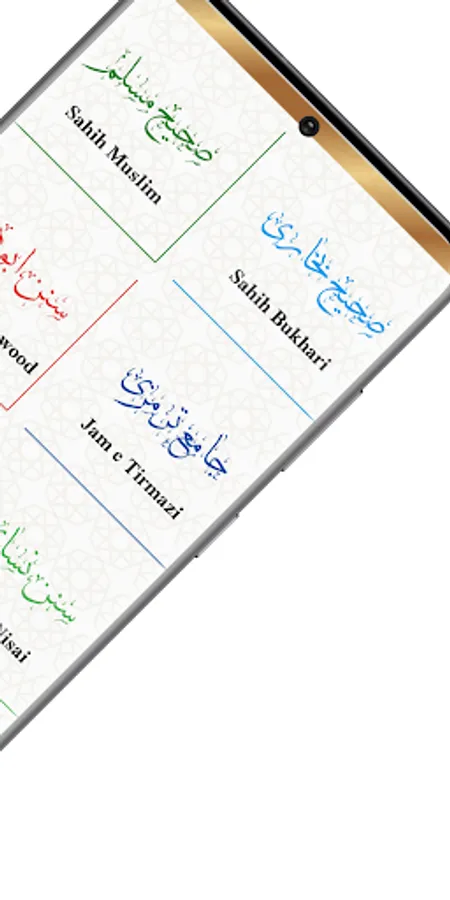 صحیح مسلم
Sahih Muslim
صحیح بخاری
Sahih Bukhari
سنن ابو
wood
جامع ترمزی
Jam e Tirmazi
سنن نسا
isai